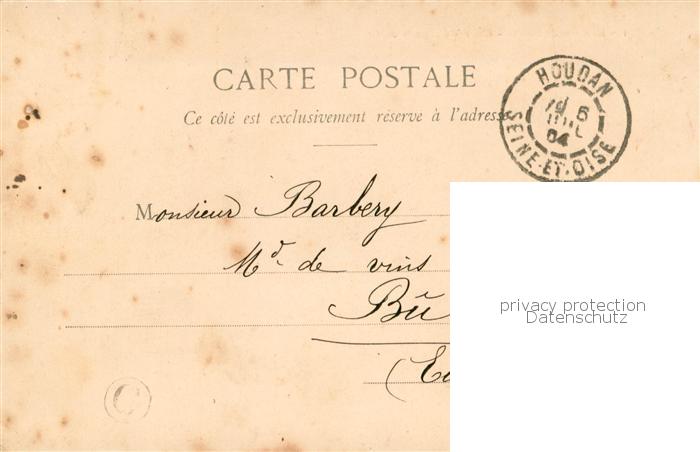 CARTE POSTALE
Ce côté est exclusivement réservé à l'adresse
HOUDAN
6
04
SEINE-ET-OISE
Monsieur Barbery
Md de vins
Bû
privacy protection
Datenschutz
C